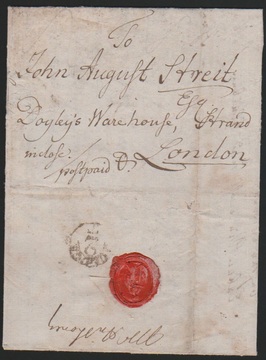 To
John August Streit
Esq
Doyley's Warehouse, Strand
inclose.
postpaid &. London